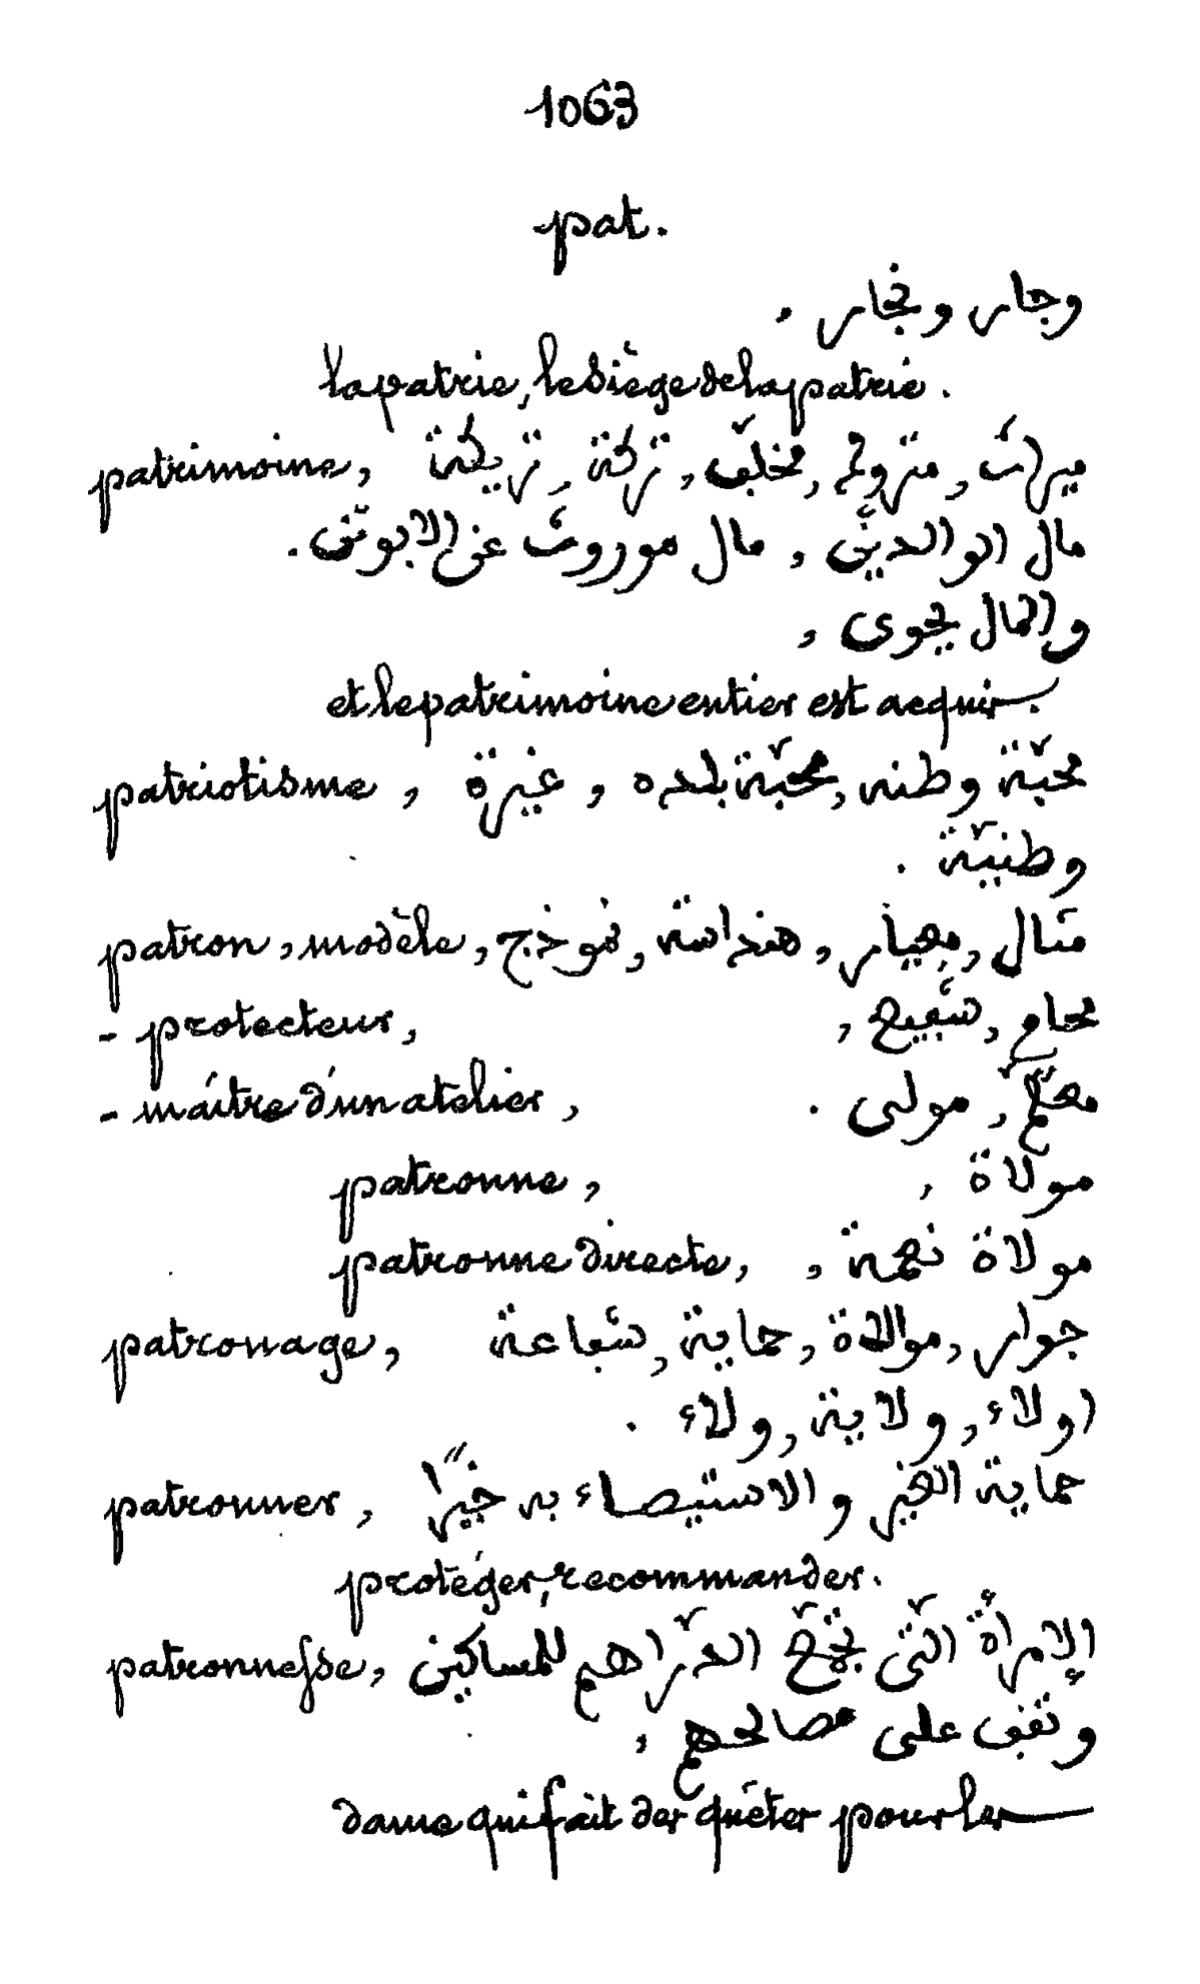 1063
pat.
وجار ونجار .
la patrie, le siège de la patrie.
patrimoine, ميراث, متروك, مخلّف, تركة, تريكة
مال الوالدين, مال موروث عن الابوين.
والمال يحوى,
et le patrimoine entier est acquis.
patriotisme, محبّة وطنه, محبّة بلده, غيرة
وطنيّة .
patron, modèle, مثال, معيار, هنداسة, نموذج
- protecteur, محام, شفيع,
- maître d'un atelier, معلّم, مولى .
patronne, مولاة,
patronne directe, مولاة نعمة,
patronage, جوار, موالاة, حماية, شفاعة
اولاء, ولاية, ولاء .
patronner, حماية الغير والاستيصاء به خيرًا
protéger, recommander.
patronnesse, الإمرأة الّتى تجمّع الدّراهم للمساكين
وتقف على مصالحهم,
dame qui fait des quêtes pour les